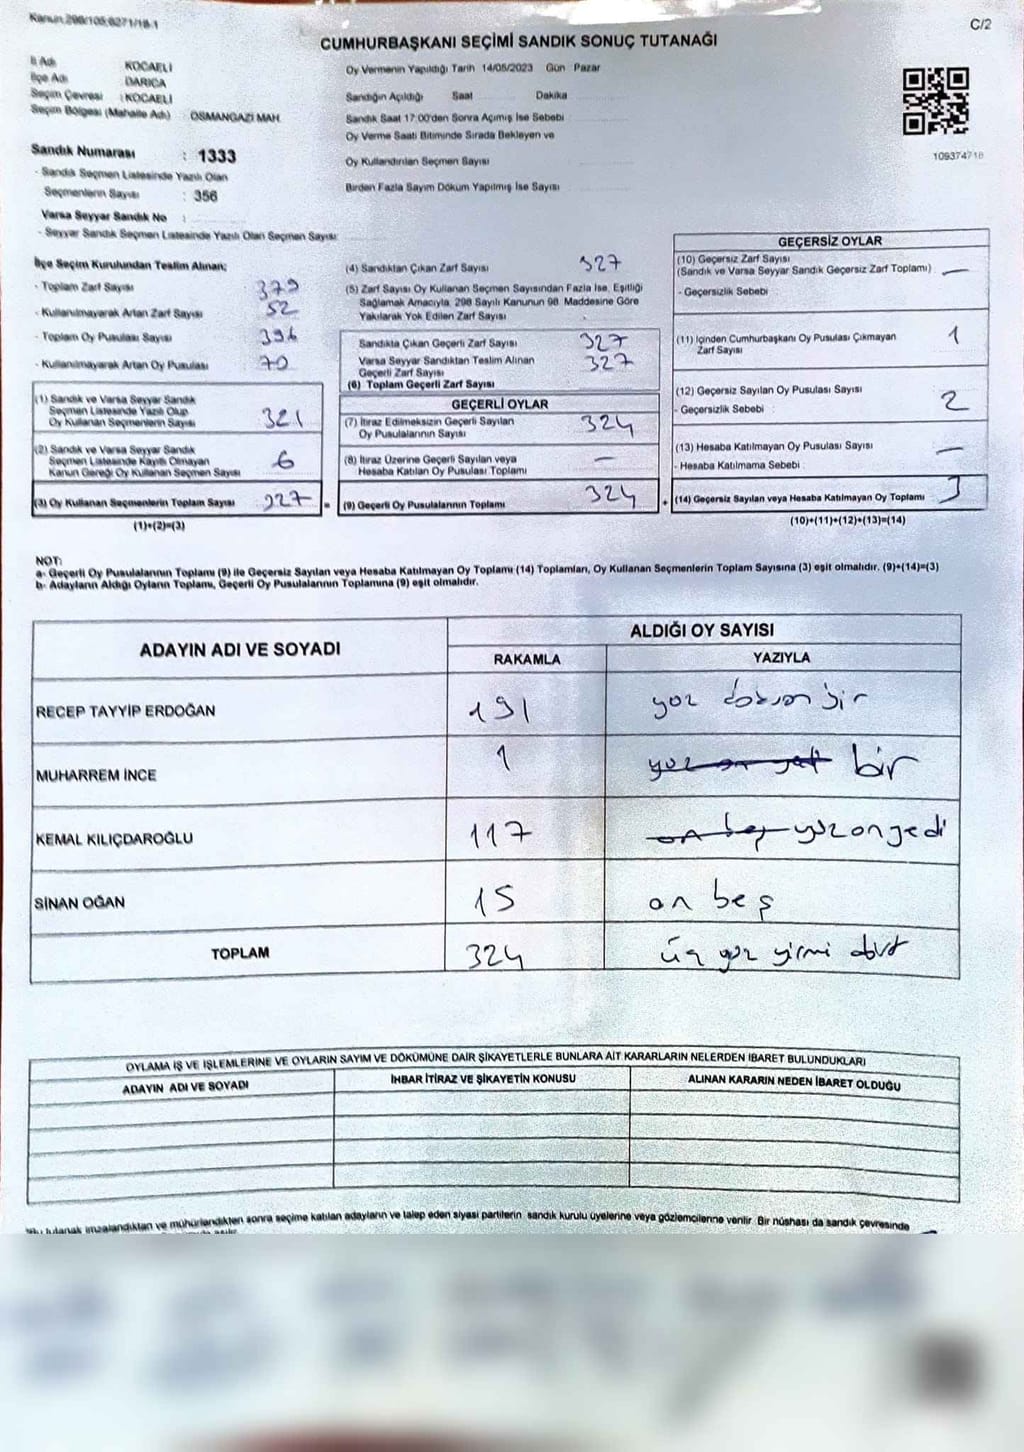 Kanun:298/105;6271/18-1
C/2
CUMHURBAŞKANI SEÇİMİ SANDIK SONUÇ TUTANAĞI
İl Adı KOCAELİ
İlçe Adı DARICA
Seçim Çevresi : KOCAELİ
Seçim Bölgesi (Mahalle Adı) OSMANGAZİ MAH.
Oy Vermenin Yapıldığı Tarih 14/05/2023 Gün Pazar
Sandığın Açıldığı Saat Dakika
Sandık Saat 17:00'den Sonra Açımış İse Sebebi
Oy Verme Saati Bitiminde Sırada Bekleyen ve
Oy Kullandırılan Seçmen Sayısı
Birden Fazla Sayım Döküm Yapılmış İse Sayısı
109374718
Sandık Numarası : 1333
- Sandık Seçmen Listesinde Yazılı Olan
Seçmenlerin Sayısı : 356
Varsa Seyyar Sandık No :
- Seyyar Sandık Seçmen Listesinde Yazılı Olan Seçmen Sayısı:
İlçe Seçim Kurulundan Teslim Alınan;
- Toplam Zarf Sayısı 379
- Kullanılmayarak Artan Zarf Sayısı 52
- Toplam Oy Pusulası Sayısı 396
- Kullanılmayarak Artan Oy Pusulası 70
(1) Sandık ve Varsa Seyyar Sandık
Seçmen Listesinde Yazılı Olup
Oy Kullanan Seçmenlerin Sayısı 321
(2) Sandık ve Varsa Seyyar Sandık
Seçmen Listesinde Kayıtlı Olmayan
Kanun Gereği Oy Kullanan Seçmen Sayısı 6
(3) Oy Kullanan Seçmenlerin Toplam Sayısı 327 =
(1)+(2)=(3)
(4) Sandıktan Çıkan Zarf Sayısı 327
(5) Zarf Sayısı Oy Kullanan Seçmen Sayısından Fazla İse, Eşitliği
Sağlamak Amacıyla, 298 Sayılı Kanunun 98. Maddesine Göre
Yakılarak Yok Edilen Zarf Sayısı
Sandıkta Çıkan Geçerli Zarf Sayısı 327
Varsa Seyyar Sandıktan Teslim Alınan
Geçerli Zarf Sayısı 327
(6) Toplam Geçerli Zarf Sayısı
GEÇERLİ OYLAR
(7) İtiraz Edilmeksizin Geçerli Sayılan
Oy Pusulalarının Sayısı 324
(8) İtiraz Üzerine Geçerli Sayılan veya
Hesaba Katılan Oy Pusulası Toplamı —
(9) Geçerli Oy Pusulalarının Toplamı 324 +
GEÇERSİZ OYLAR
(10) Geçersiz Zarf Sayısı
(Sandık ve Varsa Seyyar Sandık Geçersiz Zarf Toplamı) —
- Geçersizlik Sebebi
(11) İçinden Cumhurbaşkanı Oy Pusulası Çıkmayan
Zarf Sayısı 1
(12) Geçersiz Sayılan Oy Pusulası Sayısı
- Geçersizlik Sebebi : 2
(13) Hesaba Katılmayan Oy Pusulası Sayısı
- Hesaba Katılmama Sebebi —
(14) Geçersiz Sayılan veya Hesaba Katılmayan Oy Toplamı 3
(10)+(11)+(12)+(13)=(14)
NOT:
a- Geçerli Oy Pusulalarının Toplamı (9) ile Geçersiz Sayılan veya Hesaba Katılmayan Oy Toplamı (14) Toplamları, Oy Kullanan Seçmenlerin Toplam Sayısına (3) eşit olmalıdır. (9)+(14)=(3)
b- Adayların Aldığı Oyların Toplamı, Geçerli Oy Pusulalarının Toplamına (9) eşit olmalıdır.
ADAYIN ADI VE SOYADI
ALDIĞI OY SAYISI
RAKAMLA YAZIYLA
RECEP TAYYİP ERDOĞAN 191 yüz doksan bir
MUHARREM İNCE 1 yüz on yedi bir
KEMAL KILIÇDAROĞLU 117 on beş yüz on yedi
SİNAN OĞAN 15 on beş
TOPLAM 324 üç yüz yirmi dört
OYLAMA İŞ VE İŞLEMLERİNE VE OYLARIN SAYIM VE DÖKÜMÜNE DAİR ŞİKAYETLERLE BUNLARA AİT KARARLARIN NELERDEN İBARET BULUNDUKLARI
ADAYIN ADI VE SOYADI İHBAR İTİRAZ VE ŞİKAYETİN KONUSU ALINAN KARARIN NEDEN İBARET OLDUĞU
tutanak imzalandıktan ve mühürlendikten sonra seçime katılan adayların ve talep eden siyasi partilerin sandık kurulu üyelerine veya gözlemcilerine verilir. Bir nüshası da sandık çevresinde